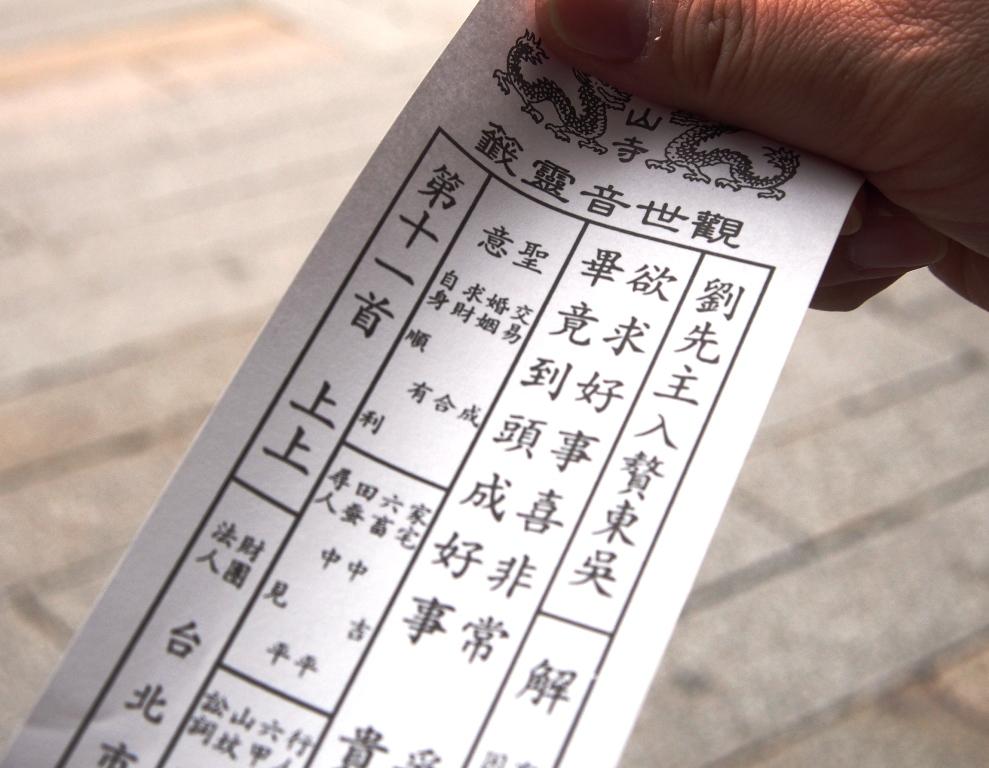 山寺
觀世音靈籤
劉先主入贅東吳
解
欲求好事喜非常
畢竟到頭成好事
貴
聖意
交易 成
婚姻 合
求財 有
自身 順利
家宅 吉
六畜 中平
田蚕 中平
尋人 見
行人
六甲
山坟
訟詞
第十一首 上上
財團法人
台北市